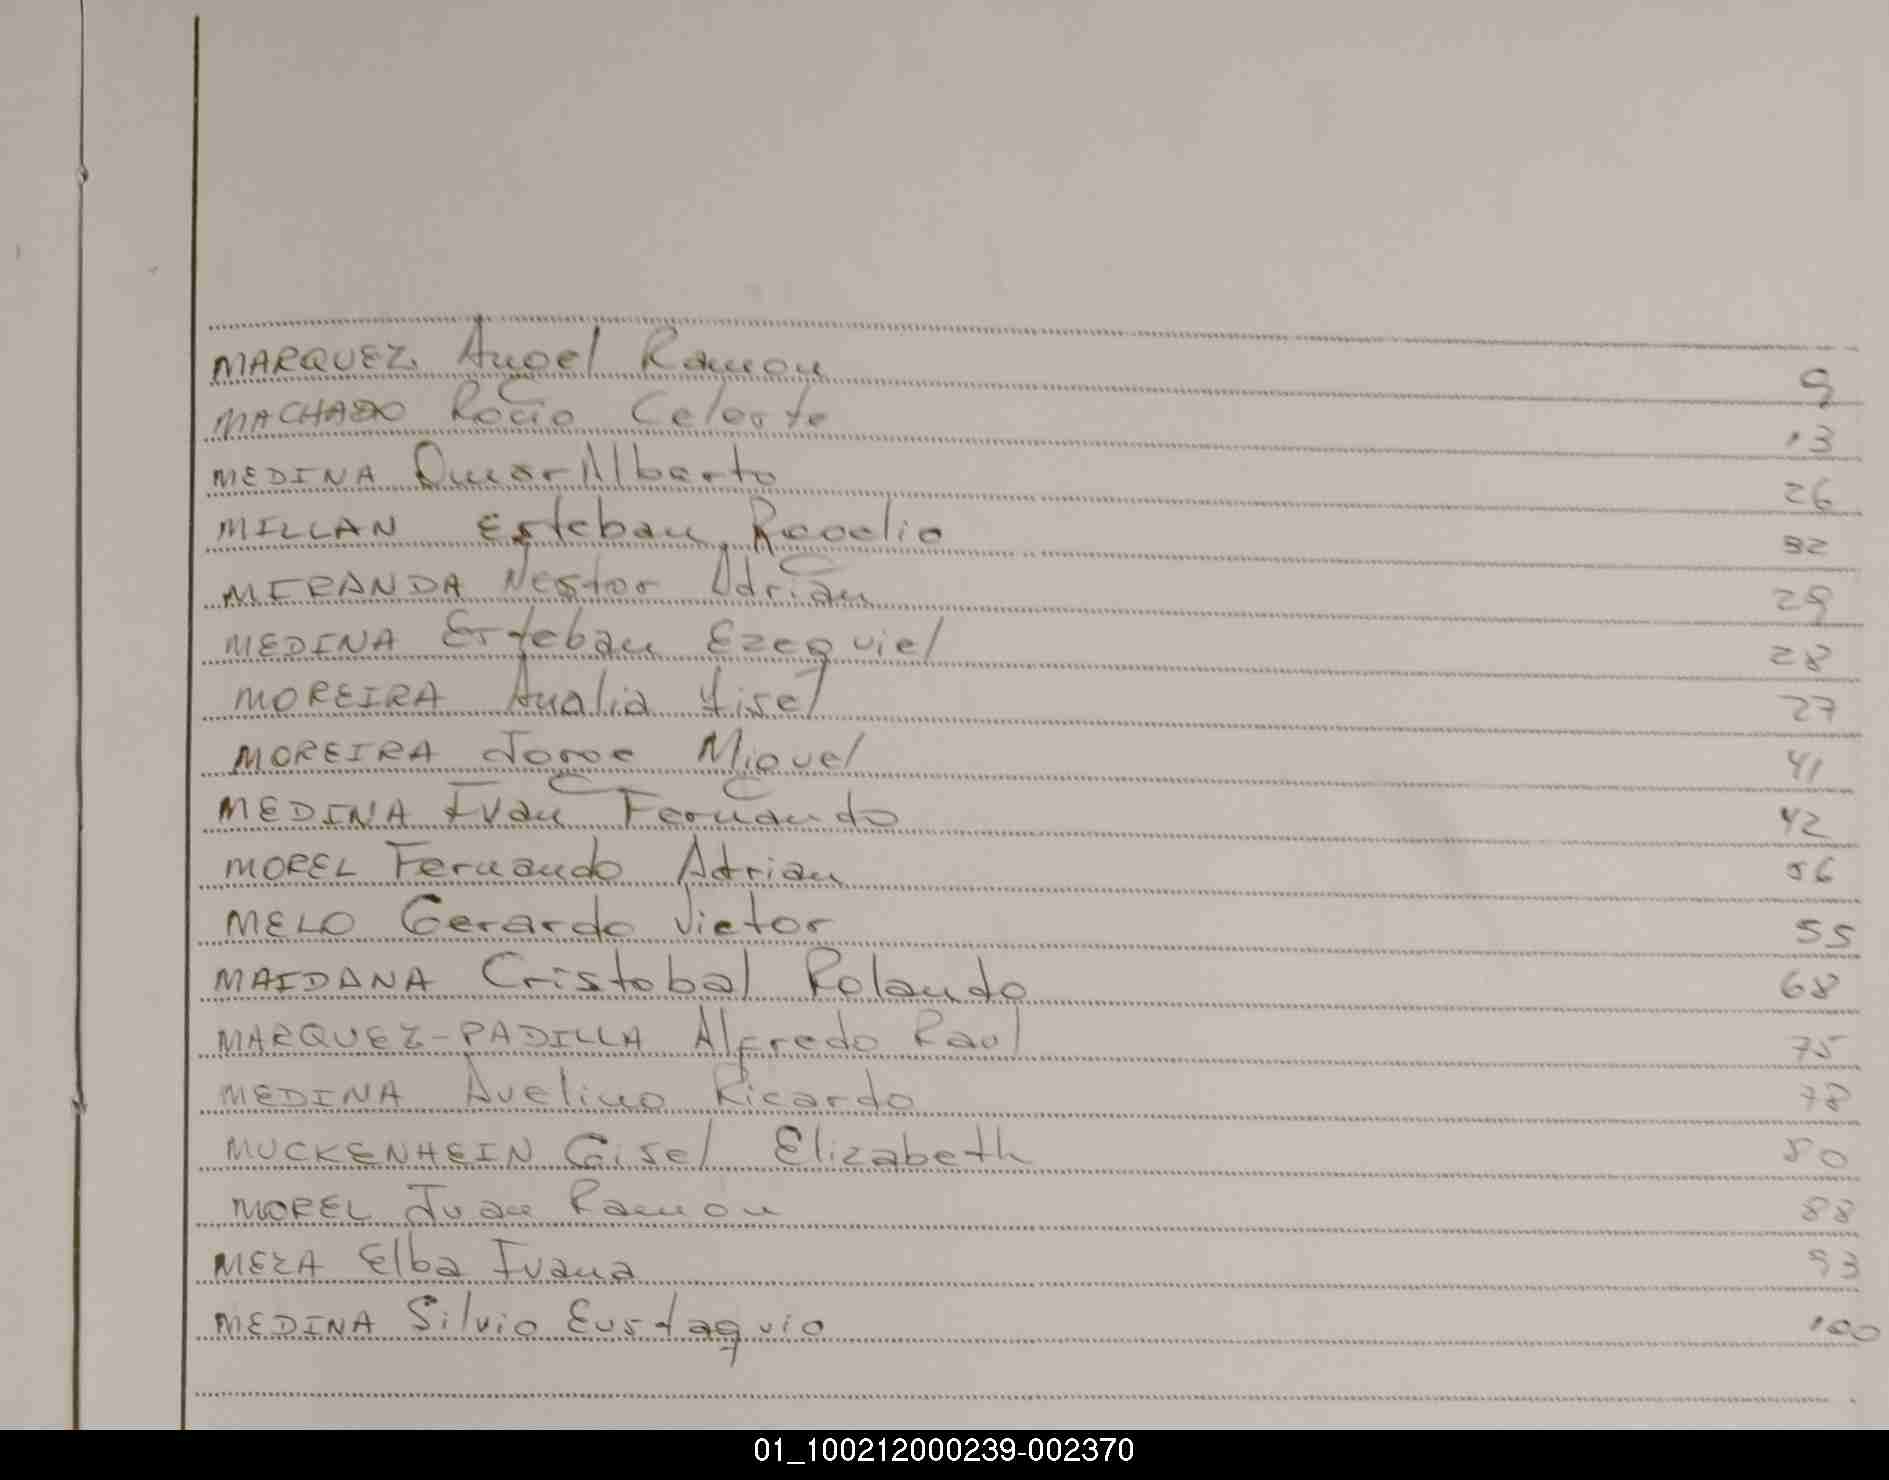 MARQUEZ Angel Ramon 9
MACHADO Rocio Celeste 13
MEDINA Omar Alberto 26
MILLAN Esteban Rogelio 32
MIRANDA Nestor Adrian 29
MEDINA Esteban Ezequiel 28
MOREIRA Analia Yisel 27
MOREIRA Jorge Miguel 41
MEDINA Ivan Fernando 42
MOREL Fernando Adrian 56
MELO Gerardo Victor 55
MAIDANA Cristobal Rolando 68
MARQUEZ-PADILLA Alfredo Raul 75
MEDINA Avelino Ricardo 78
MUCKENHEIN Gisel Elizabeth 80
MOREL Juan Ramon 88
MEZA Elba Ivana 93
MEDINA Silvio Eustaquio 100
01_100212000239-002370